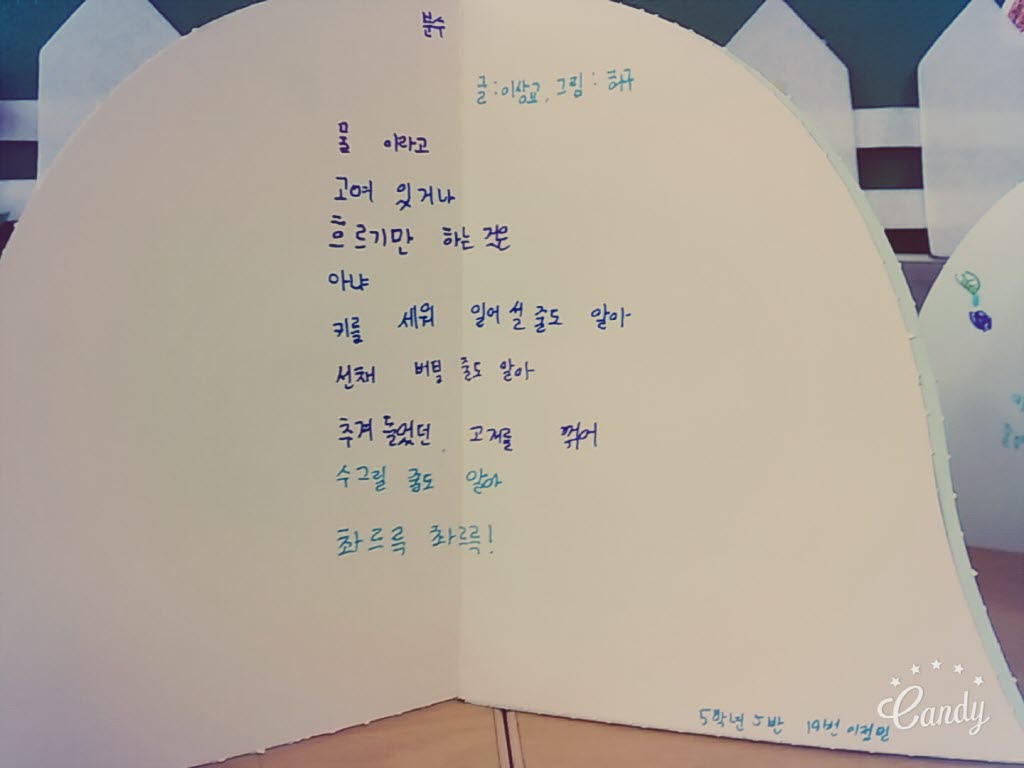 분수
글:이상교, 그림: 허구
물 이라고
고여 있거나
흐르기만 하는 것은
아냐
키를 세워 일어 설 줄도 알아
선채 버틸 줄도 알아
추켜 들었던 고개를 꺾어
수그릴 줄도 알아
촤르륵 촤르륵!
5학년 5반 19번
Candy